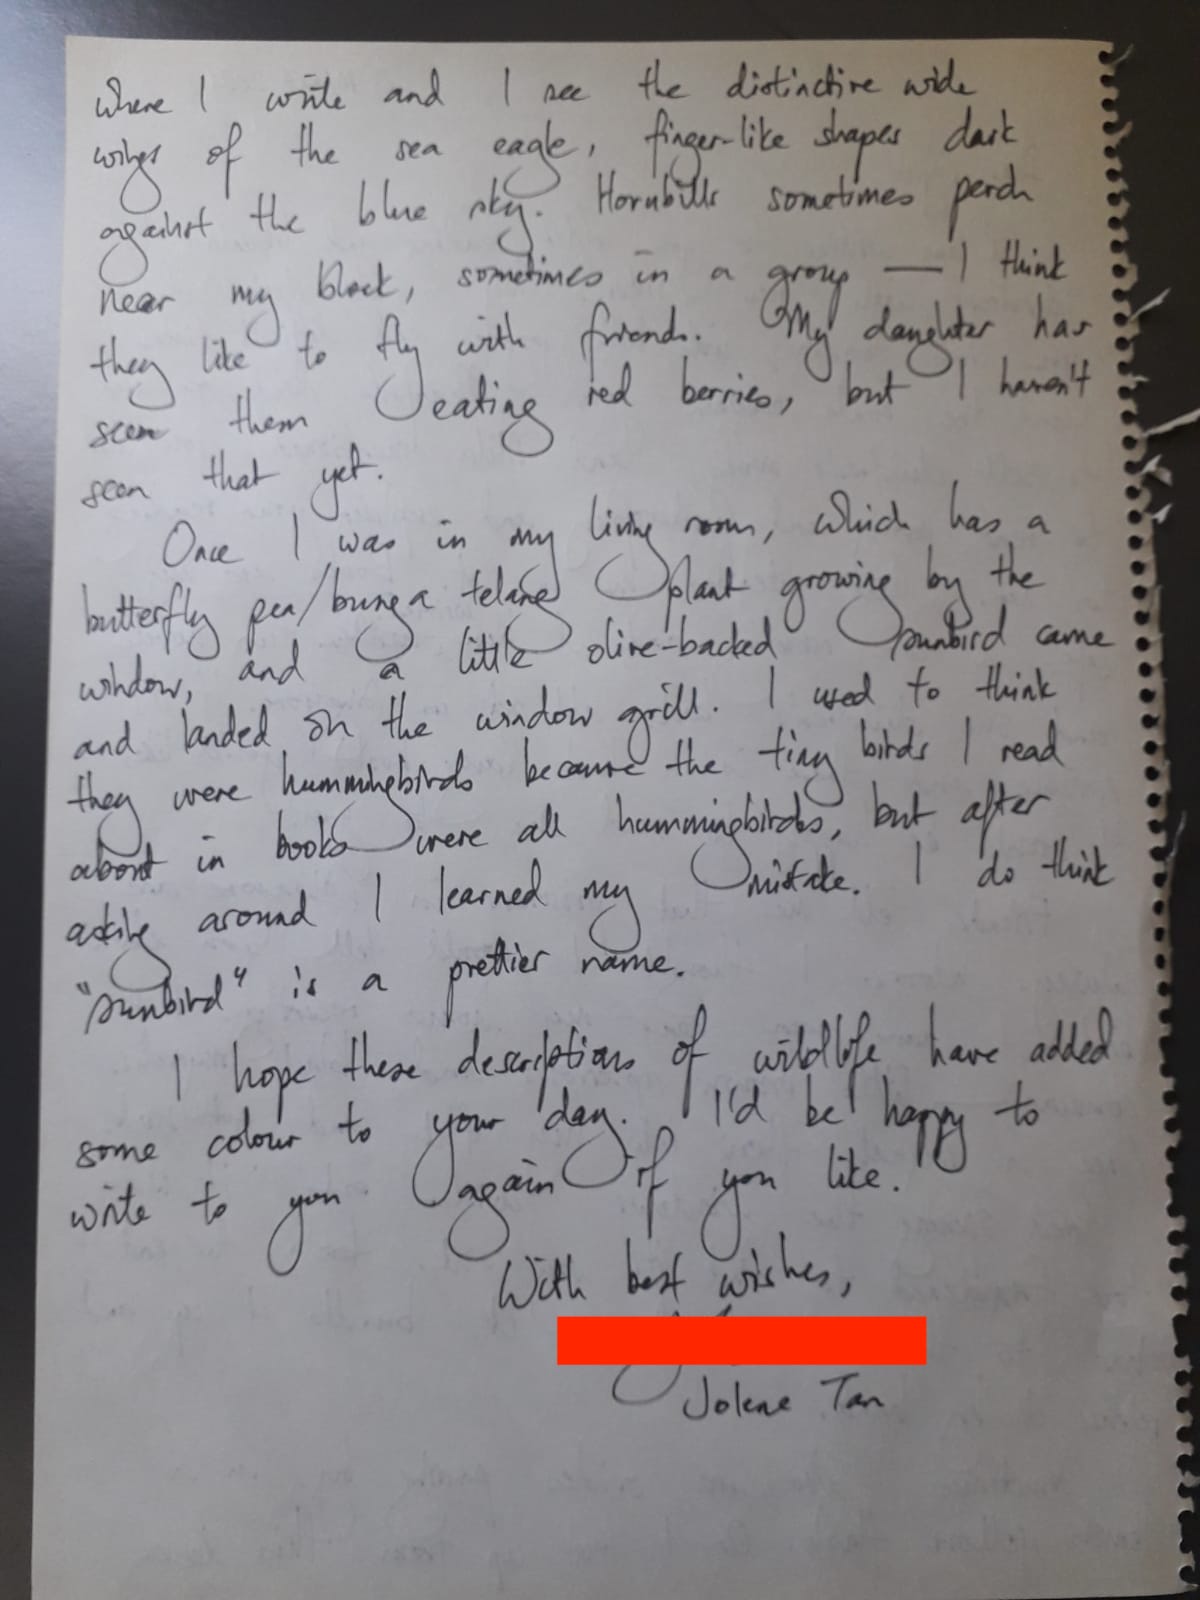 where I write and I see the distinctive wide
wings of the sea eagle, finger-like shapes dark
against the blue sky. Hornbills sometimes perch
near my block, sometimes in a group — I think
they like to fly with friends. My daughter has
seen them eating red berries, but I haven't
seen that yet.
Once I was in my living room, which has a
butterfly pea/bunga telang plant growing by the
window, and a little olive-backed sunbird came
and landed on the window grill. I used to think
they were hummingbirds because the tiny birds I read
about in books were all hummingbirds, but after
asking around I learned my mistake. I do think
"sunbird" is a prettier name.
I hope these descriptions of wildlife have added
some colour to your day. I'd be happy to
write to you again if you like.
With best wishes,
Jolene Tan